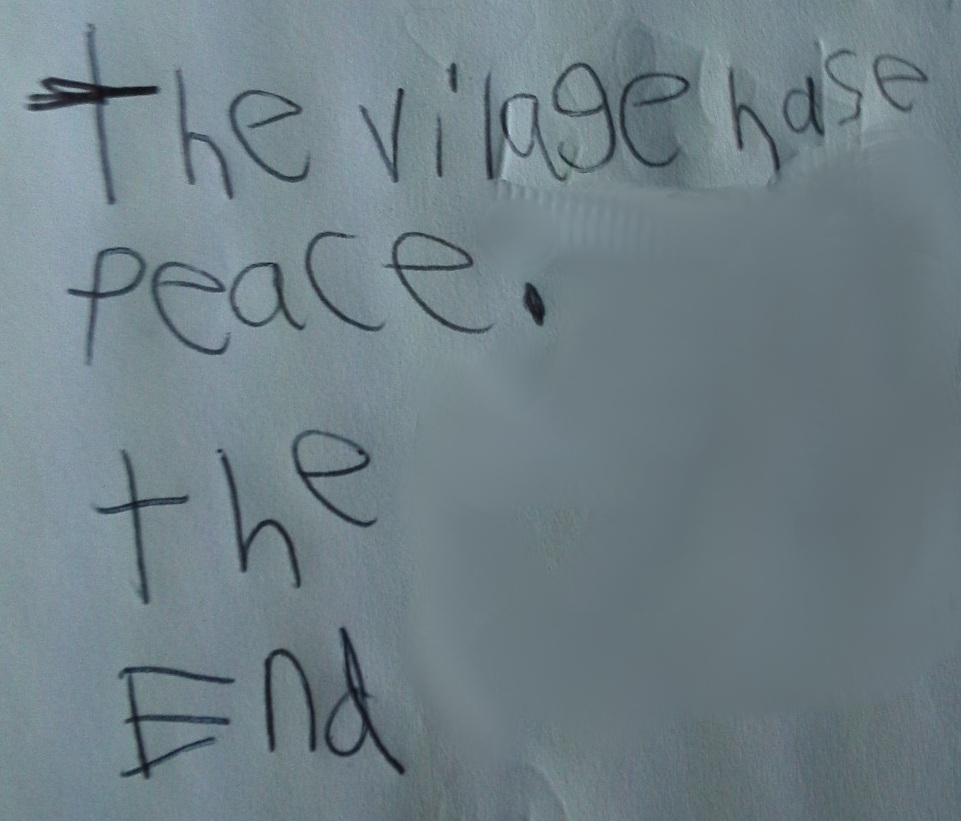 the vilage hase
peace.
the
End